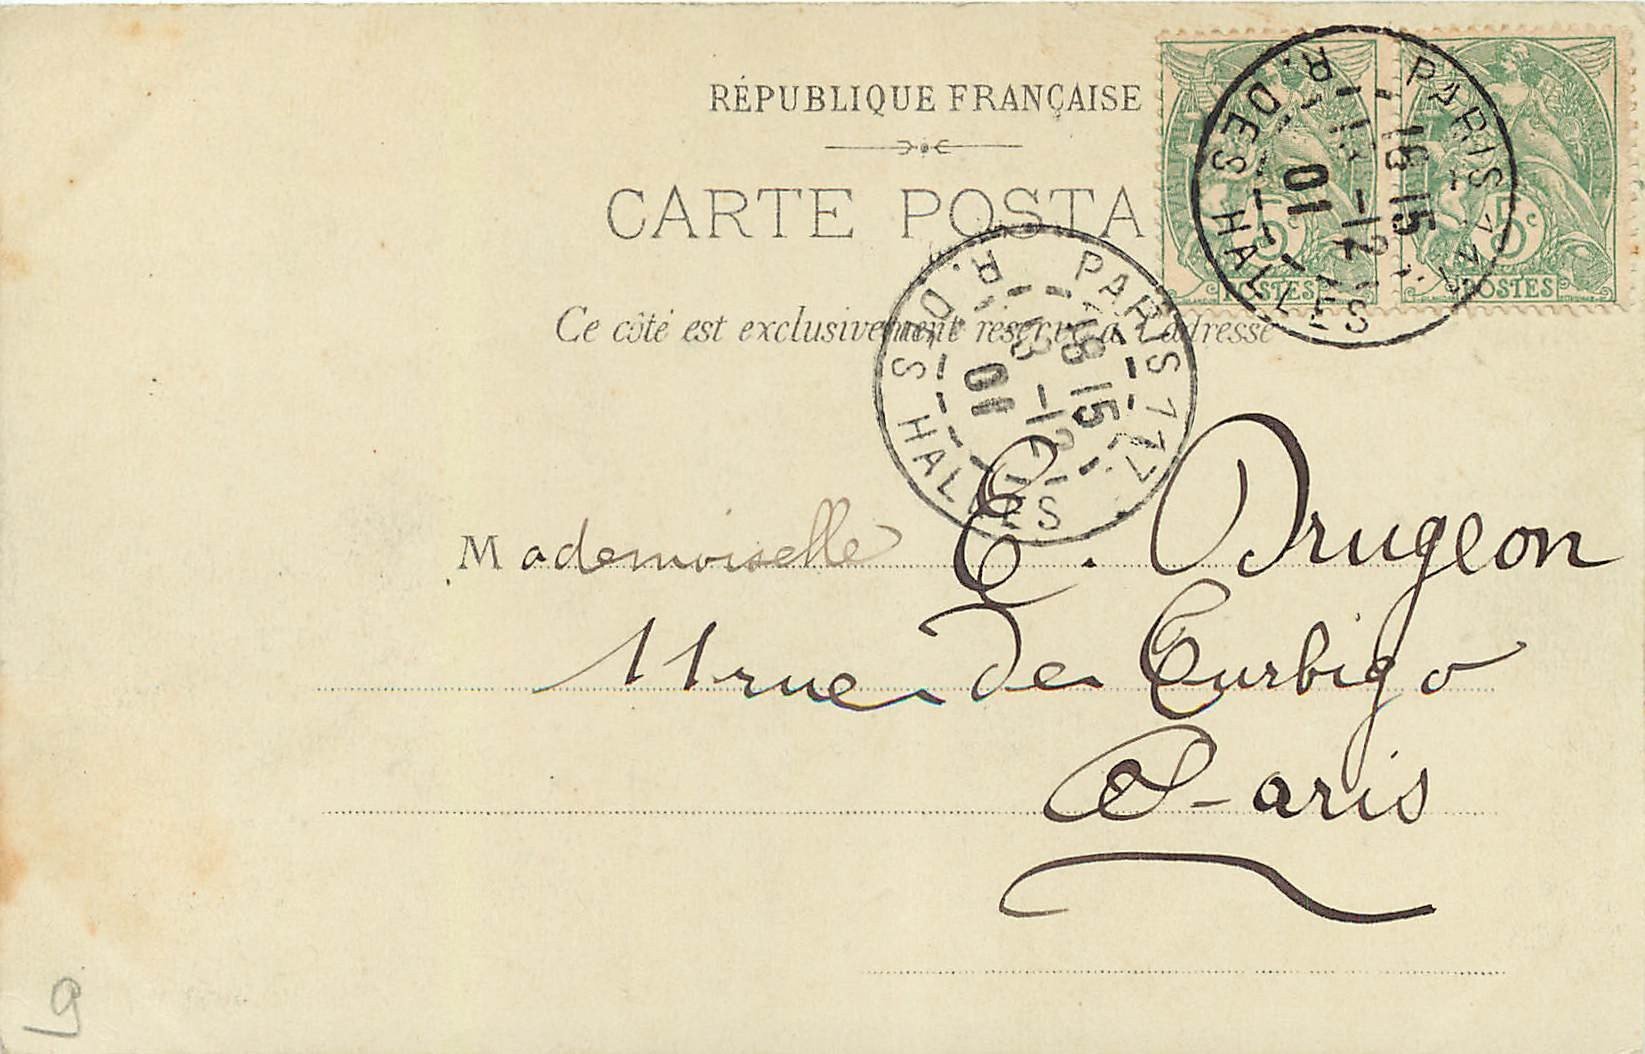 RÉPUBLIQUE FRANÇAISE
CARTE POSTA
Ce côté est exclusivement réservé à l'adresse
5c 5c
POSTES POSTES
PARIS
R. DES HALLES
18 15
-12
01
PARIS 177
R. DES HALLES
18 15
13 -12
01
Mademoiselle E. Drugeon
11 rue de Turbigo
Paris
9